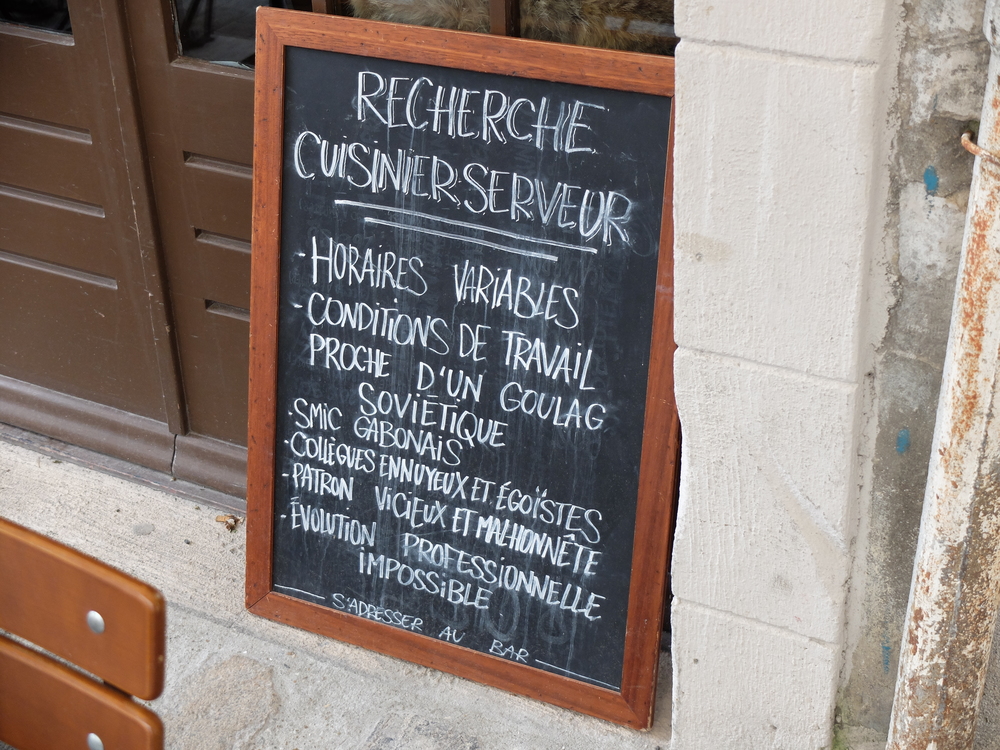 RECHERCHE
CUISINIER.SERVEUR
- HORAIRES VARIABLES
- CONDITIONS DE TRAVAIL
PROCHE D'UN GOULAG
SOVIÉTIQUE
- SMIC GABONAIS
- COLLÈGUES ENNUYEUX ET ÉGOÏSTES
- PATRON VICIEUX ET MALHONNÊTE
- ÉVOLUTION PROFESSIONNELLE
IMPOSSIBLE
S'ADRESSER AU BAR